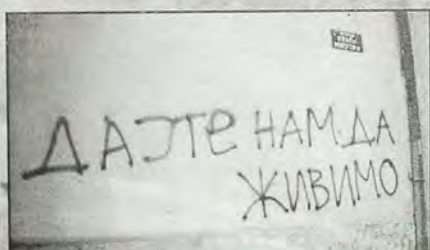 ДАЈТЕ НАМ ДА
ЖИВИМО